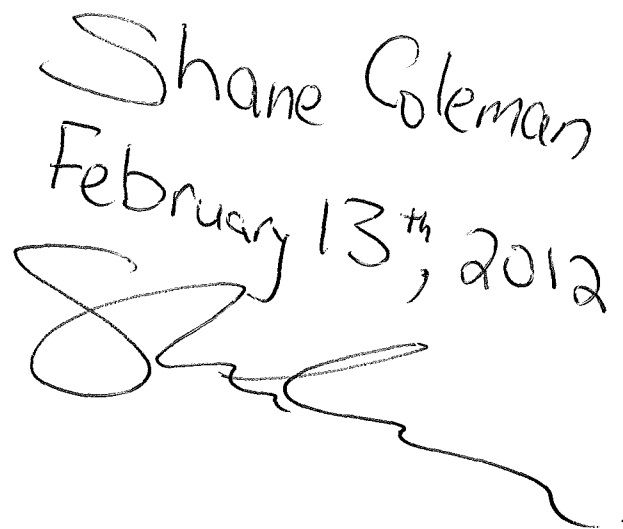 Shane Coleman
February 13th, 2012